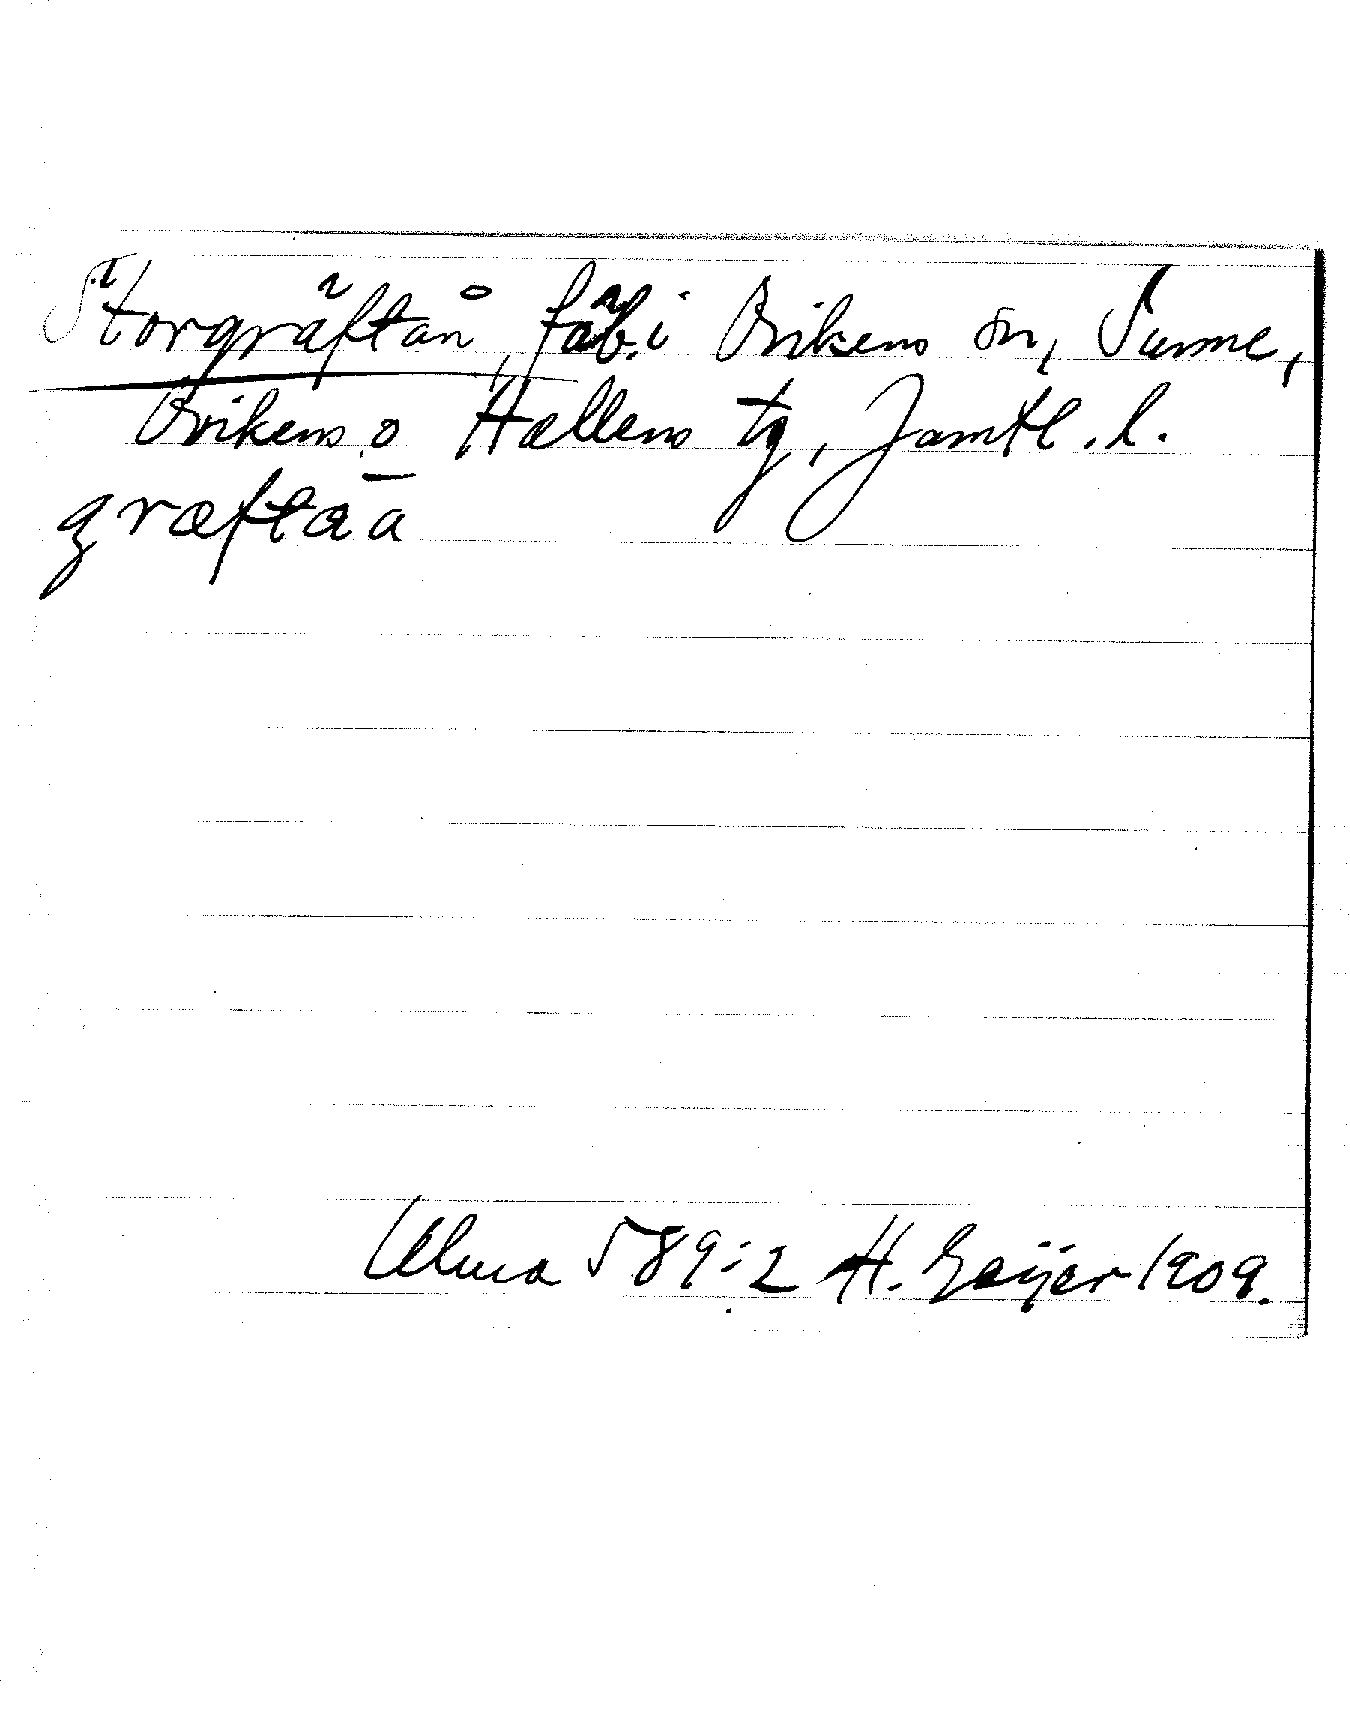 Storgräftån, fäb. i Ovikens sn, Sunne,
Ovikens o Hallens tg, Jämtl. l.
græftāa
Ulma 589:2 H. Geijer 1909.